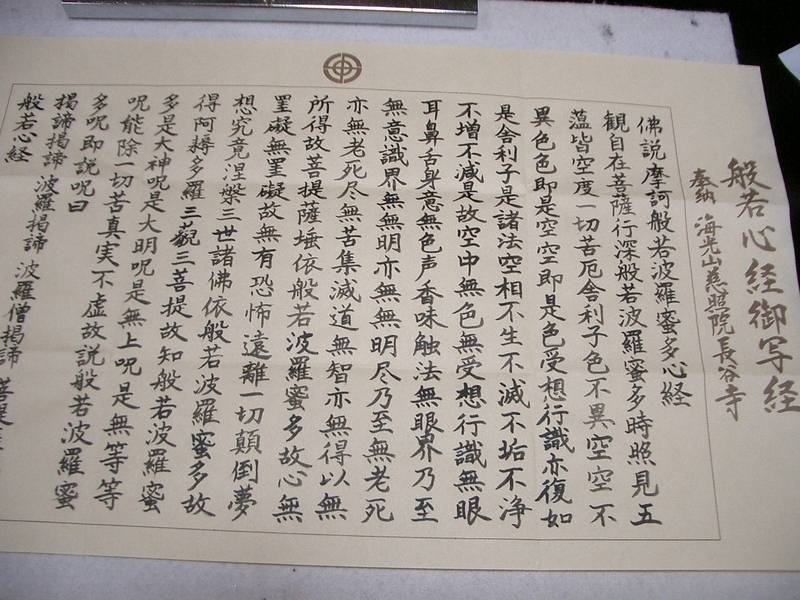 般若心経御写経
奉納 海光山慈照院長谷寺
佛説摩訶般若波羅蜜多心経
観自在菩薩行深般若波羅蜜多時照見五
薀皆空度一切苦厄舎利子色不異空空不
異色色即是空空即是色受想行識亦復如
是舎利子是諸法空相不生不滅不垢不浄
不増不減是故空中無色無受想行識無眼
耳鼻舌身意無色声香味触法無眼界乃至
無意識界無無明亦無無明尽乃至無老死
亦無老死尽無苦集滅道無智亦無得以無
所得故菩提薩埵依般若波羅蜜多故心無
罣礙無罣礙故無有恐怖遠離一切顛倒夢
想究竟涅槃三世諸佛依般若波羅蜜多故
得阿耨多羅三藐三菩提故知般若波羅蜜
多是大神呪是大明呪是無上呪是無等等
呪能除一切苦真実不虚故説般若波羅蜜
多呪即説呪曰
揭諦揭諦 波羅揭諦 波羅僧揭諦 菩提
般若心経